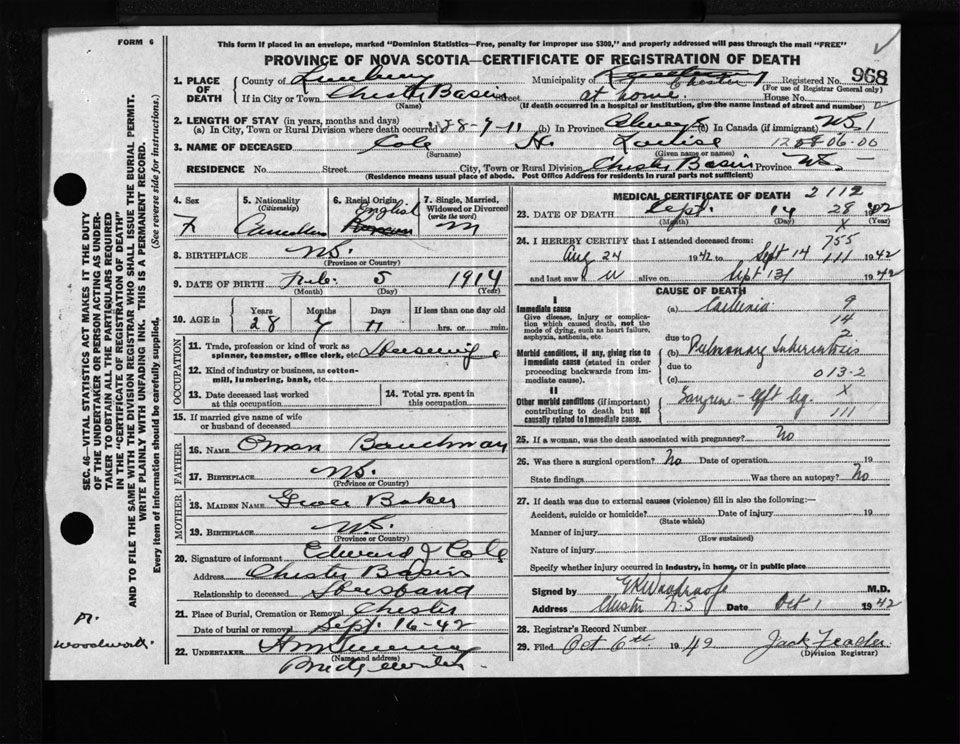 FORM 6
This form if placed in an envelope, marked "Dominion Statistics—Free, penalty for improper use $300," and properly addressed will pass through the mail "FREE"
PROVINCE OF NOVA SCOTIA—CERTIFICATE OF REGISTRATION OF DEATH
1. PLACE OF DEATH County of Lunenburg Municipality of Chester Registered No. 968
(For use of Registrar General only)
If in City or Town Chester Basin Street at home House No.
(Name) (If death occurred in a hospital or institution, give the name instead of street and number)
2. LENGTH OF STAY (in years, months and days)
(a) In City, Town or Rural Division where death occurred 28-7-11 (b) In Province Always (c) In Canada (if immigrant) NS 1
3. NAME OF DECEASED Cole Louise 06-06
(Surname) (Given name or names)
RESIDENCE No. Street City, Town or Rural Division Chester Basin Province NS
(Residence means usual place of abode. Post Office Address for residents in rural parts not sufficient)
4. Sex 5. Nationality 6. Racial Origin 7. Single, Married, Widowed or Divorced
(Citizenship) English (write the word)
F Canadian M
8. BIRTHPLACE NS.
(Province or Country)
9. DATE OF BIRTH Feb. 5 1914
(Month) (Day) (Year)
10. AGE in Years Months Days If less than one day old
28 7 11 hrs. or min.
OCCUPATION
11. Trade, profession or kind of work as spinner, teamster, office clerk, etc. Housewife
12. Kind of industry or business, as cotton-mill, lumbering, bank, etc.
13. Date deceased last worked at this occupation
14. Total yrs. spent in this occupation
15. If married give name of wife or husband of deceased
FATHER
16. NAME Oman Bauchman
17. BIRTHPLACE NS.
(Province or Country)
MOTHER
18. MAIDEN NAME Baker
19. BIRTHPLACE N.S.
(Province or Country)
20. Signature of informant Edward J Cole
Address Chester Basin
Relationship to deceased Husband
21. Place of Burial, Cremation or Removal Chester
Date of burial or removal Sept. 16-42
22. UNDERTAKER
(Name and address)
Bridgewater
MEDICAL CERTIFICATE OF DEATH 2112
23. DATE OF DEATH Sept. 14 28
(Month) (Day) (Year)
X
24. I HEREBY CERTIFY that I attended deceased from: 755
Aug 24 1942 to Sept 14 111 1942
and last saw alive on Sept 13 1942
CAUSE OF DEATH
I
Immediate cause
Give disease, injury or complication which caused death, not the mode of dying, such as heart failure, asphyxia, asthenia, etc.
(a) 9
14
due to 2
Morbid conditions, if any, giving rise to immediate cause (stated in order proceeding backwards from immediate cause).
(b) Pulmonary Tuberculosis
due to
(c) 013-2
II
Other morbid conditions (if important) contributing to death but not causally related to immediate cause.
Gangrene - left leg. X
111
25. If a woman, was the death associated with pregnancy? No
26. Was there a surgical operation? No Date of operation 19
State findings Was there an autopsy? No
27. If death was due to external causes (violence) fill in also the following:—
Accident, suicide or homicide? Date of injury 19
(State which)
Manner of injury
(How sustained)
Nature of injury
Specify whether injury occurred in industry, in home, or in public place
Signed by M.D.
Address Chester N.S Date Oct 1 1942
28. Registrar's Record Number
29. Filed Oct 6th 1942 Jack
(Division Registrar)
SEC. 46—VITAL STATISTICS ACT MAKES IT THE DUTY OF THE UNDERTAKER OR PERSON ACTING AS UNDERTAKER TO OBTAIN ALL THE PARTICULARS REQUIRED IN THE "CERTIFICATE OF REGISTRATION OF DEATH" AND TO FILE THE SAME WITH THE DIVISION REGISTRAR WHO SHALL ISSUE THE BURIAL PERMIT.
WRITE PLAINLY WITH UNFADING INK. THIS IS A PERMANENT RECORD.
Every item of information should be carefully supplied. (See reverse side for instructions.)
Woodworth.